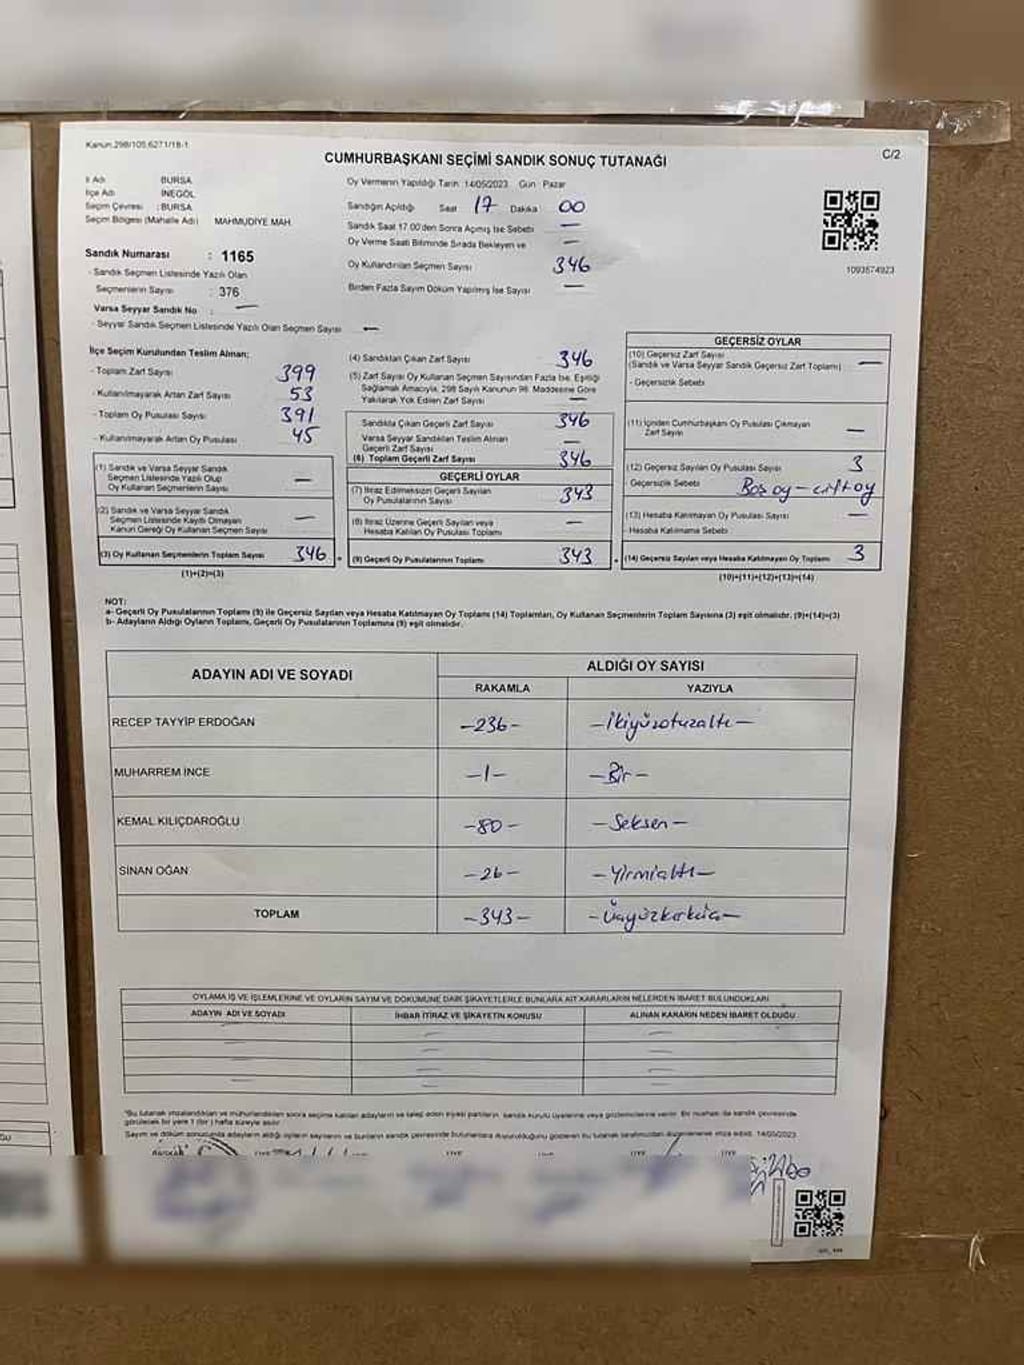 Kanun:298/105,6271/18-1
CUMHURBAŞKANI SEÇİMİ SANDIK SONUÇ TUTANAĞI
C/2
İl Adı : BURSA
İlçe Adı : İNEGÖL
Seçim Çevresi : BURSA
Seçim Bölgesi (Mahalle Adı) : MAHMUDİYE MAH.
Oy Vermenin Yapıldığı Tarih: 14/05/2023 Gün: Pazar
Sandığın Açıldığı Saat 17 Dakika 00
Sandık Saat 17.00'den Sonra Açılmış İse Sebebi —
Oy Verme Saati Bitiminde Sırada Bekleyen ve —
Oy Kullandırılan Seçmen Sayısı 346
Birden Fazla Sayım Döküm Yapılmış İse Sayısı —
1093574923
Sandık Numarası : 1165
- Sandık Seçmen Listesinde Yazılı Olan
Seçmenlerin Sayısı : 376
Varsa Seyyar Sandık No : —
- Seyyar Sandık Seçmen Listesinde Yazılı Olan Seçmen Sayısı : —
İlçe Seçim Kurulundan Teslim Alınan;
- Toplam Zarf Sayısı 399
- Kullanılmayarak Artan Zarf Sayısı 53
- Toplam Oy Pusulası Sayısı 391
- Kullanılmayarak Artan Oy Pusulası 45
(1) Sandık ve Varsa Seyyar Sandık
Seçmen Listesinde Yazılı Olup
Oy Kullanan Seçmenlerin Sayısı —
(2) Sandık ve Varsa Seyyar Sandık
Seçmen Listesinde Kayıtlı Olmayan
Kanun Gereği Oy Kullanan Seçmen Sayısı —
(3) Oy Kullanan Seçmenlerin Toplam Sayısı 346
(1)+(2)=(3)
(4) Sandıktan Çıkan Zarf Sayısı 346
(5) Zarf Sayısı Oy Kullanan Seçmen Sayısından Fazla İse, Eşitliği
Sağlamak Amacıyla, 298 Sayılı Kanunun 98. Maddesine Göre
Yakılarak Yok Edilen Zarf Sayısı —
Sandıkta Çıkan Geçerli Zarf Sayısı 346
Varsa Seyyar Sandıktan Teslim Alınan
Geçerli Zarf Sayısı —
(6) Toplam Geçerli Zarf Sayısı 346
GEÇERLİ OYLAR
(7) İtiraz Edilmeksizin Geçerli Sayılan
Oy Pusulalarının Sayısı 343
(8) İtiraz Üzerine Geçerli Sayılan veya
Hesaba Katılan Oy Pusulaları Toplamı —
(9) Geçerli Oy Pusulalarının Toplamı 343
GEÇERSİZ OYLAR
(10) Geçersiz Zarf Sayısı
(Sandık ve Varsa Seyyar Sandık Geçersiz Zarf Toplamı) —
- Geçersizlik Sebebi
(11) İçinden Cumhurbaşkanı Oy Pusulası Çıkmayan
Zarf Sayısı —
(12) Geçersiz Sayılan Oy Pusulası Sayısı 3
- Geçersizlik Sebebi Boş oy-çift oy
(13) Hesaba Katılmayan Oy Pusulası Sayısı —
- Hesaba Katılmama Sebebi
(14) Geçersiz Sayılan veya Hesaba Katılmayan Oy Toplamı 3
(10)+(11)+(12)+(13)=(14)
NOT:
a- Geçerli Oy Pusulalarının Toplamı (9) ile Geçersiz Sayılan veya Hesaba Katılmayan Oy Toplamı (14) Toplamları, Oy Kullanan Seçmenlerin Toplam Sayısına (3) eşit olmalıdır. (9)+(14)=(3)
b- Adayların Aldığı Oyların Toplamı, Geçerli Oy Pusulalarının Toplamına (9) eşit olmalıdır.
ADAYIN ADI VE SOYADI
ALDIĞI OY SAYISI
RAKAMLA YAZIYLA
RECEP TAYYİP ERDOĞAN -236- -İkiyüzotuzaltı-
MUHARREM İNCE -1- -Bir-
KEMAL KILIÇDAROĞLU -80- -Seksen-
SİNAN OĞAN -26- -Yirmialtı-
TOPLAM -343- -Üçyüzkırküç-
OYLAMA İŞ VE İŞLEMLERİNE VE OYLARIN SAYIM VE DÖKÜMÜNE DAİR ŞİKAYETLERLE BUNLARA AİT KARARLARIN NELERDEN İBARET BULUNDUKLARI
ADAYIN ADI VE SOYADI İHBAR İTİRAZ VE ŞİKAYETİN KONUSU ALINAN KARARIN NEDEN İBARET OLDUĞU
*Bu tutanak imzalandıktan ve mühürlendikten sonra seçime katılan adayların ve talep eden siyasi partilerin sandık kurulu üyelerine veya gözlemcilerine verilir. Bir nüshası da sandık çevresinde
görülecek bir yere 1 (bir) hafta süreyle asılır.